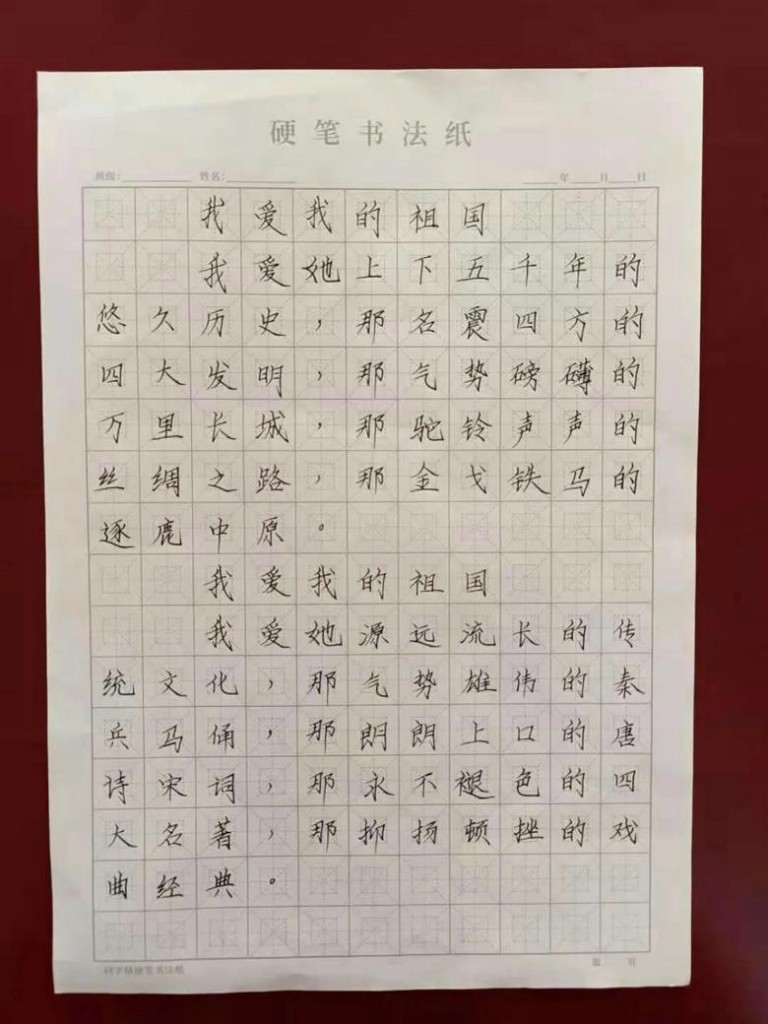 硬笔书法纸
班级:　姓名:　年　月　日
我爱我的祖国
我爱她上下五千年的
悠久历史，那名震四方的
四大发明，那气势磅礴的
万里长城，那驼铃声声的
丝绸之路，那金戈铁马的
逐鹿中原。
我爱我的祖国
我爱她源远流长的传
统文化，那气势雄伟的秦
兵马俑，那朗朗上口的唐
诗宋词，那永不褪色的四
大名著，那抑扬顿挫的戏
曲经典。
第　页